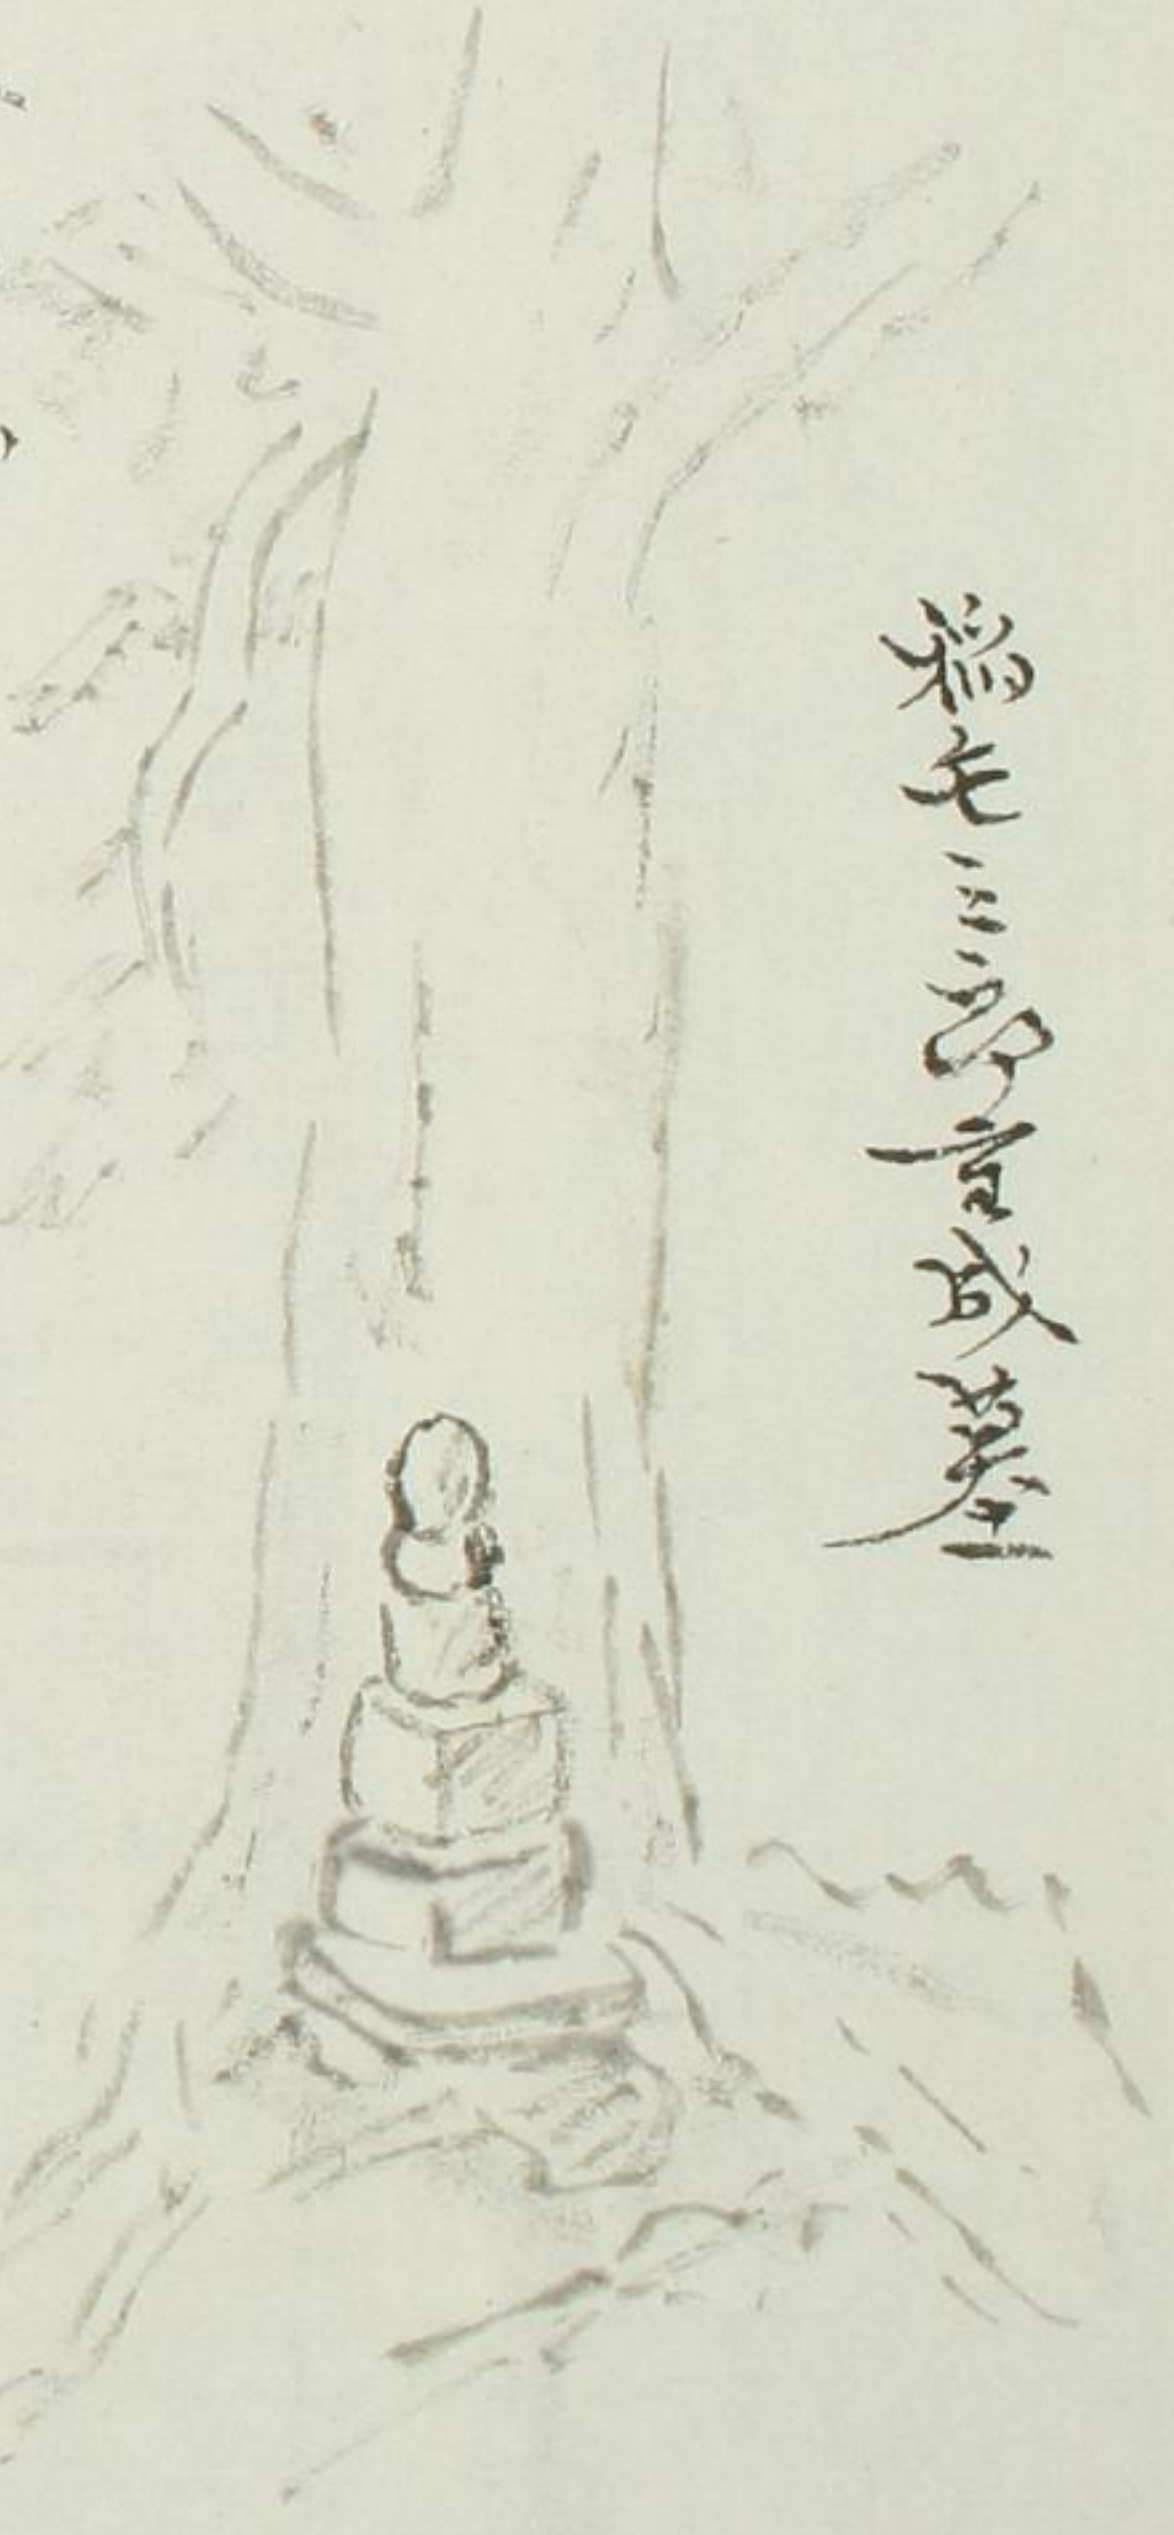 稲毛三郎重成墓